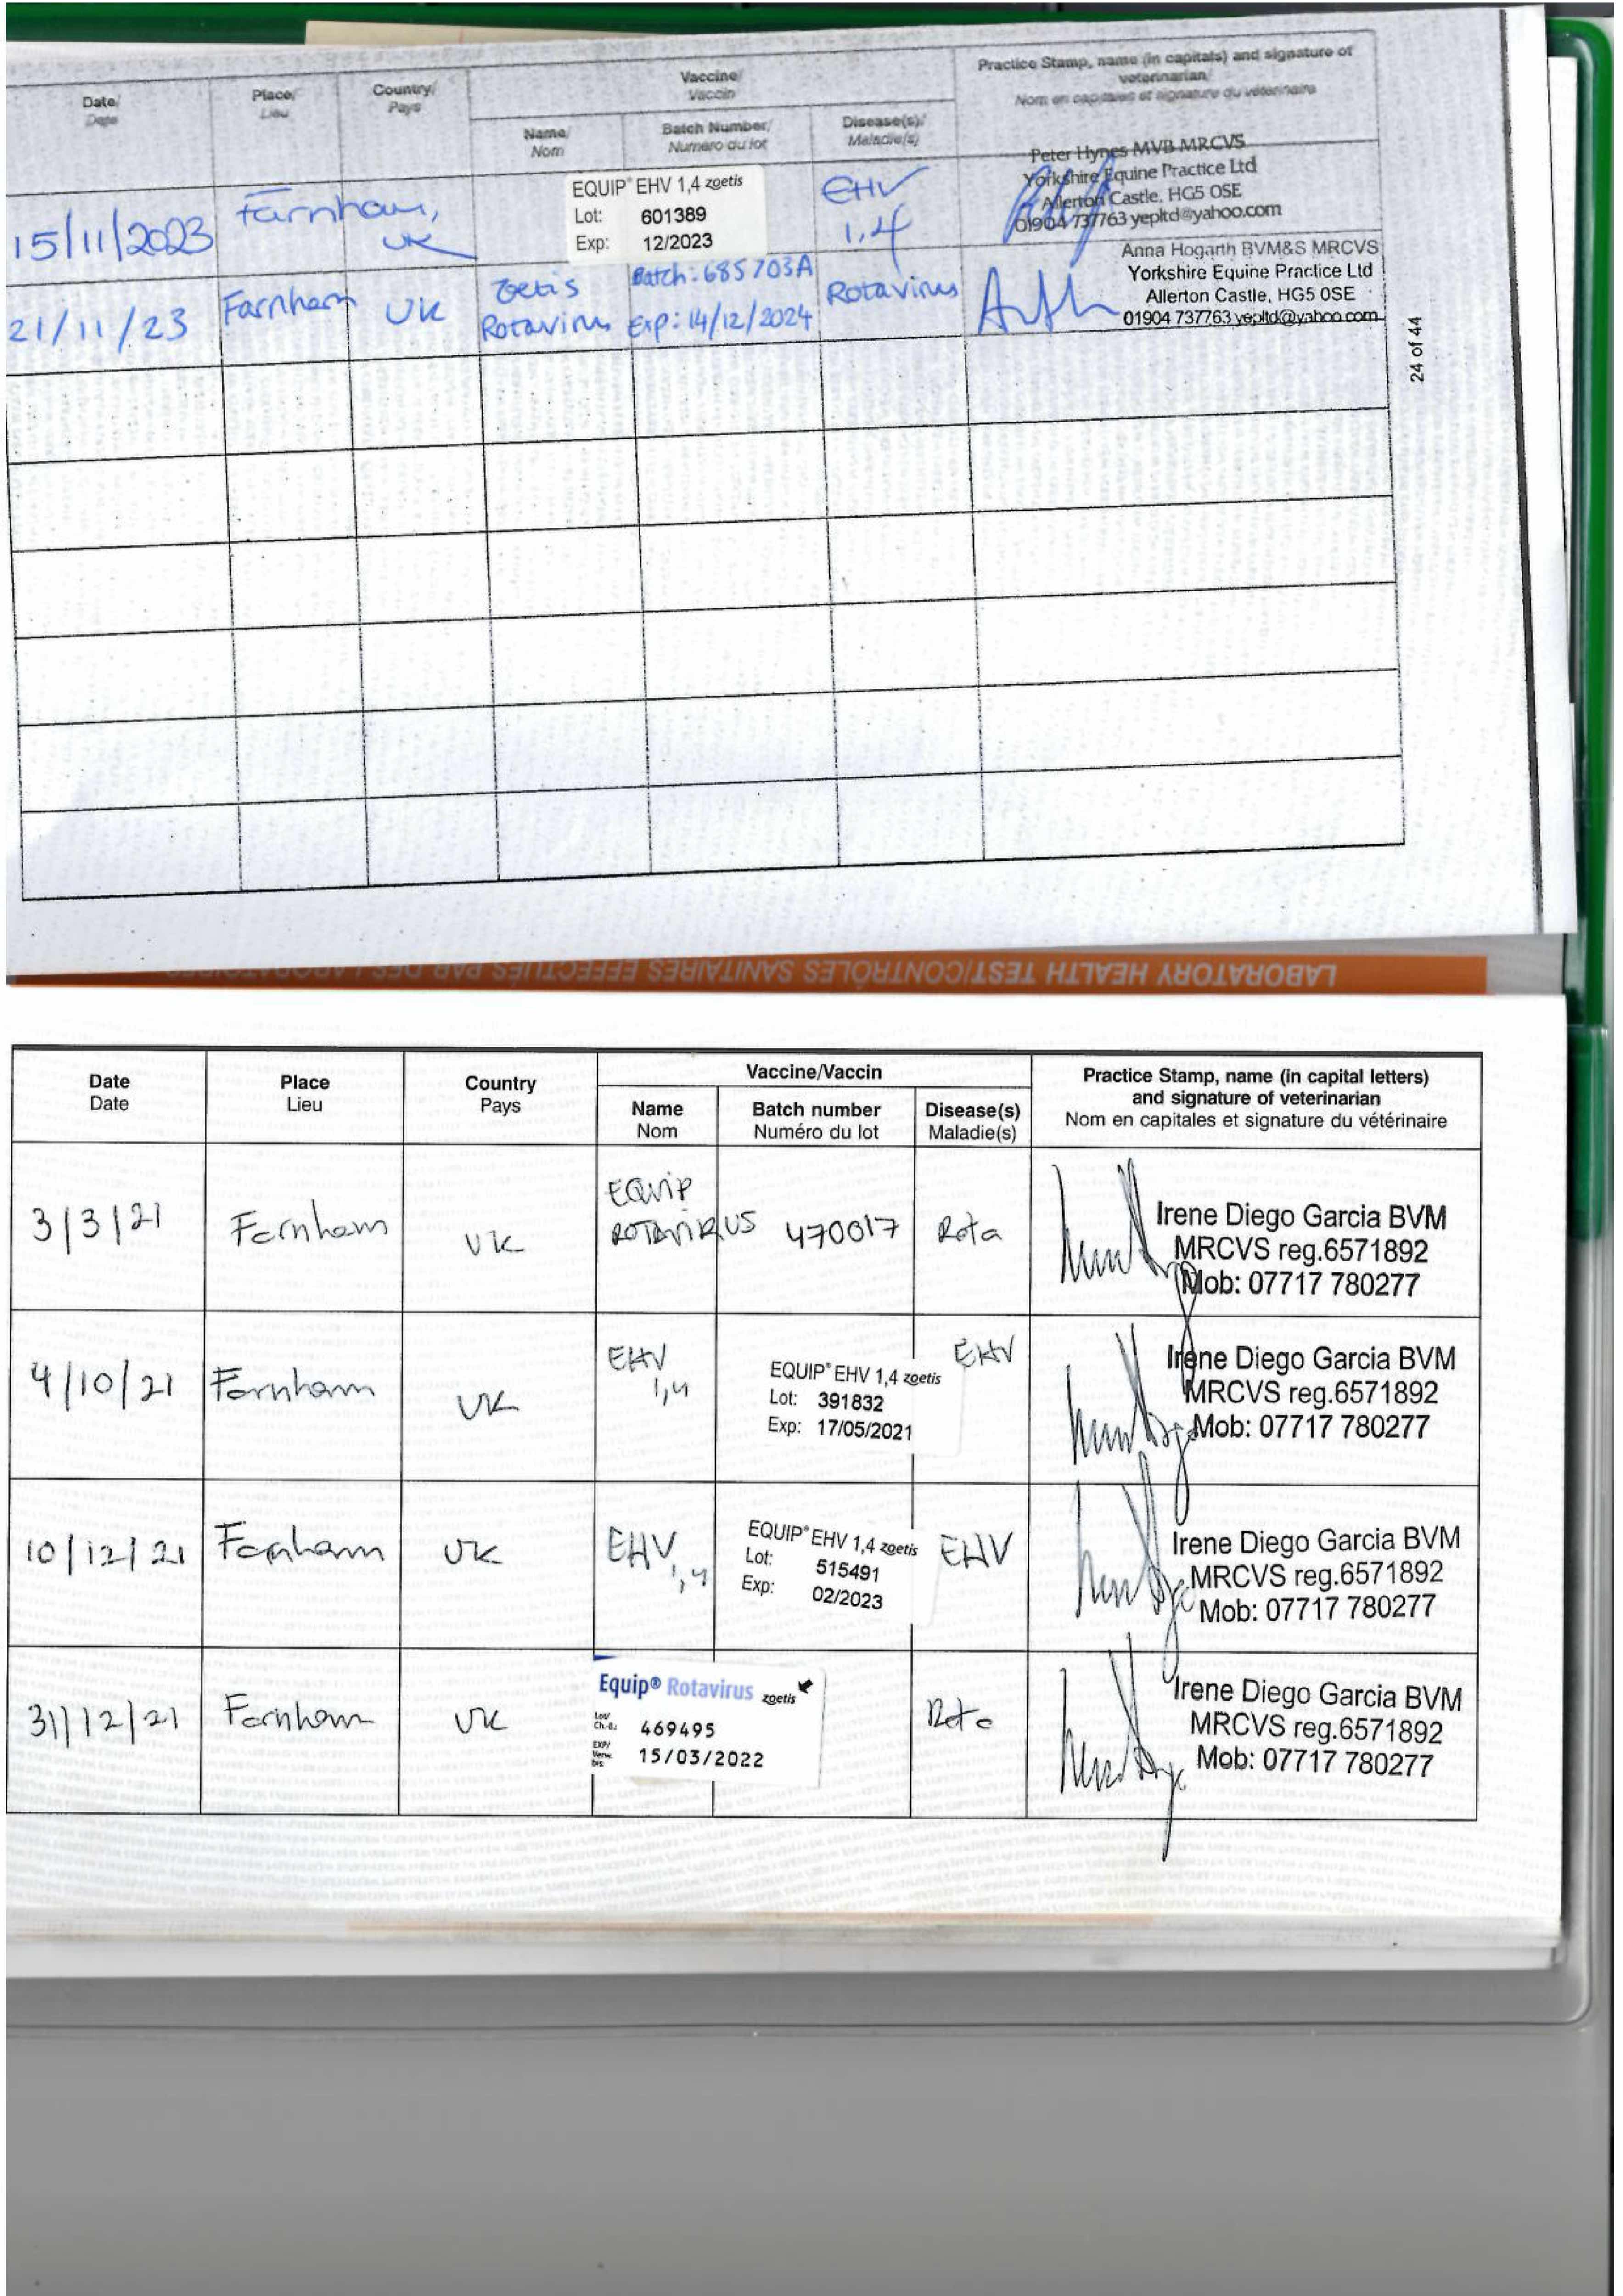 Date/
Date
Place/
Lieu
Country/
Pays
Vaccine/
Vaccin
Practice Stamp, name (in capitals) and signature of
veterinarian/
Nom en capitales et signature du vétérinaire
Name/
Nom
Batch Number/
Numéro du lot
Disease(s)/
Maladie(s)
15/11/2023
Farnham,
UK
EQUIP® EHV 1,4 zoetis
Lot: 601389
Exp: 12/2023
EHV
1,4
Peter Hynes MVB MRCVS
Yorkshire Equine Practice Ltd
Allerton Castle, HG5 0SE
01904 737763 yepltd@yahoo.com
21/11/23
Farnham
UK
Zoetis
Rotavirus
Batch: 685703A
Exp: 14/12/2024
Rotavirus
Anna Hogarth BVM&S MRCVS
Yorkshire Equine Practice Ltd
Allerton Castle, HG5 0SE
01904 737763 yepltd@yahoo.com
24 of 44
LABORATORY HEALTH TEST/CONTRÔLES SANITAIRES EFFECTUÉS PAR DES LABORATOIRES
Date
Date
Place
Lieu
Country
Pays
Vaccine/Vaccin
Practice Stamp, name (in capital letters)
and signature of veterinarian
Nom en capitales et signature du vétérinaire
Name
Nom
Batch number
Numéro du lot
Disease(s)
Maladie(s)
3/3/21
Farnham
UK
EQUIP
ROTAVIRUS
470017
Rota
Irene Diego Garcia BVM
MRCVS reg.6571892
Mob: 07717 780277
4/10/21
Farnham
UK
EHV
1,4
EQUIP® EHV 1,4 zoetis
Lot: 391832
Exp: 17/05/2021
EHV
Irene Diego Garcia BVM
MRCVS reg.6571892
Mob: 07717 780277
10/12/21
Farnham
UK
EHV
1,4
EQUIP® EHV 1,4 zoetis
Lot: 515491
Exp: 02/2023
EHV
Irene Diego Garcia BVM
MRCVS reg.6571892
Mob: 07717 780277
31/12/21
Farnham
UK
Equip® Rotavirus zoetis
Lot/
Ch.-B.: 469495
EXP/
Verw.
bis: 15/03/2022
Rota
Irene Diego Garcia BVM
MRCVS reg.6571892
Mob: 07717 780277